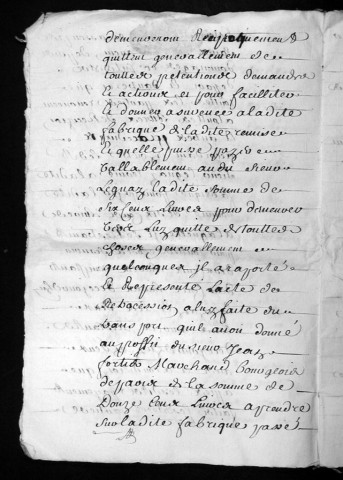 demeureront Respectivement
quittent generallement de
touttes pretentions demandes
et actions et pour facilliter
et donner asseurance a ladite
fabrique de ladite remise
et quelle puisse
vallablement audit sieur
ladite somme de
six Cens Livres pour demeurer
quitte de touttes
choses generallement
quelconques il a raporté
et Represente Lacte de
Retrocession a luy faite du
transport quil avoit donné
au proffit du sieur Jean
fortin Marchand Bourgeois
de paris de la somme de
Douze Cens Livres a prendre
sur ladite fabrique passé